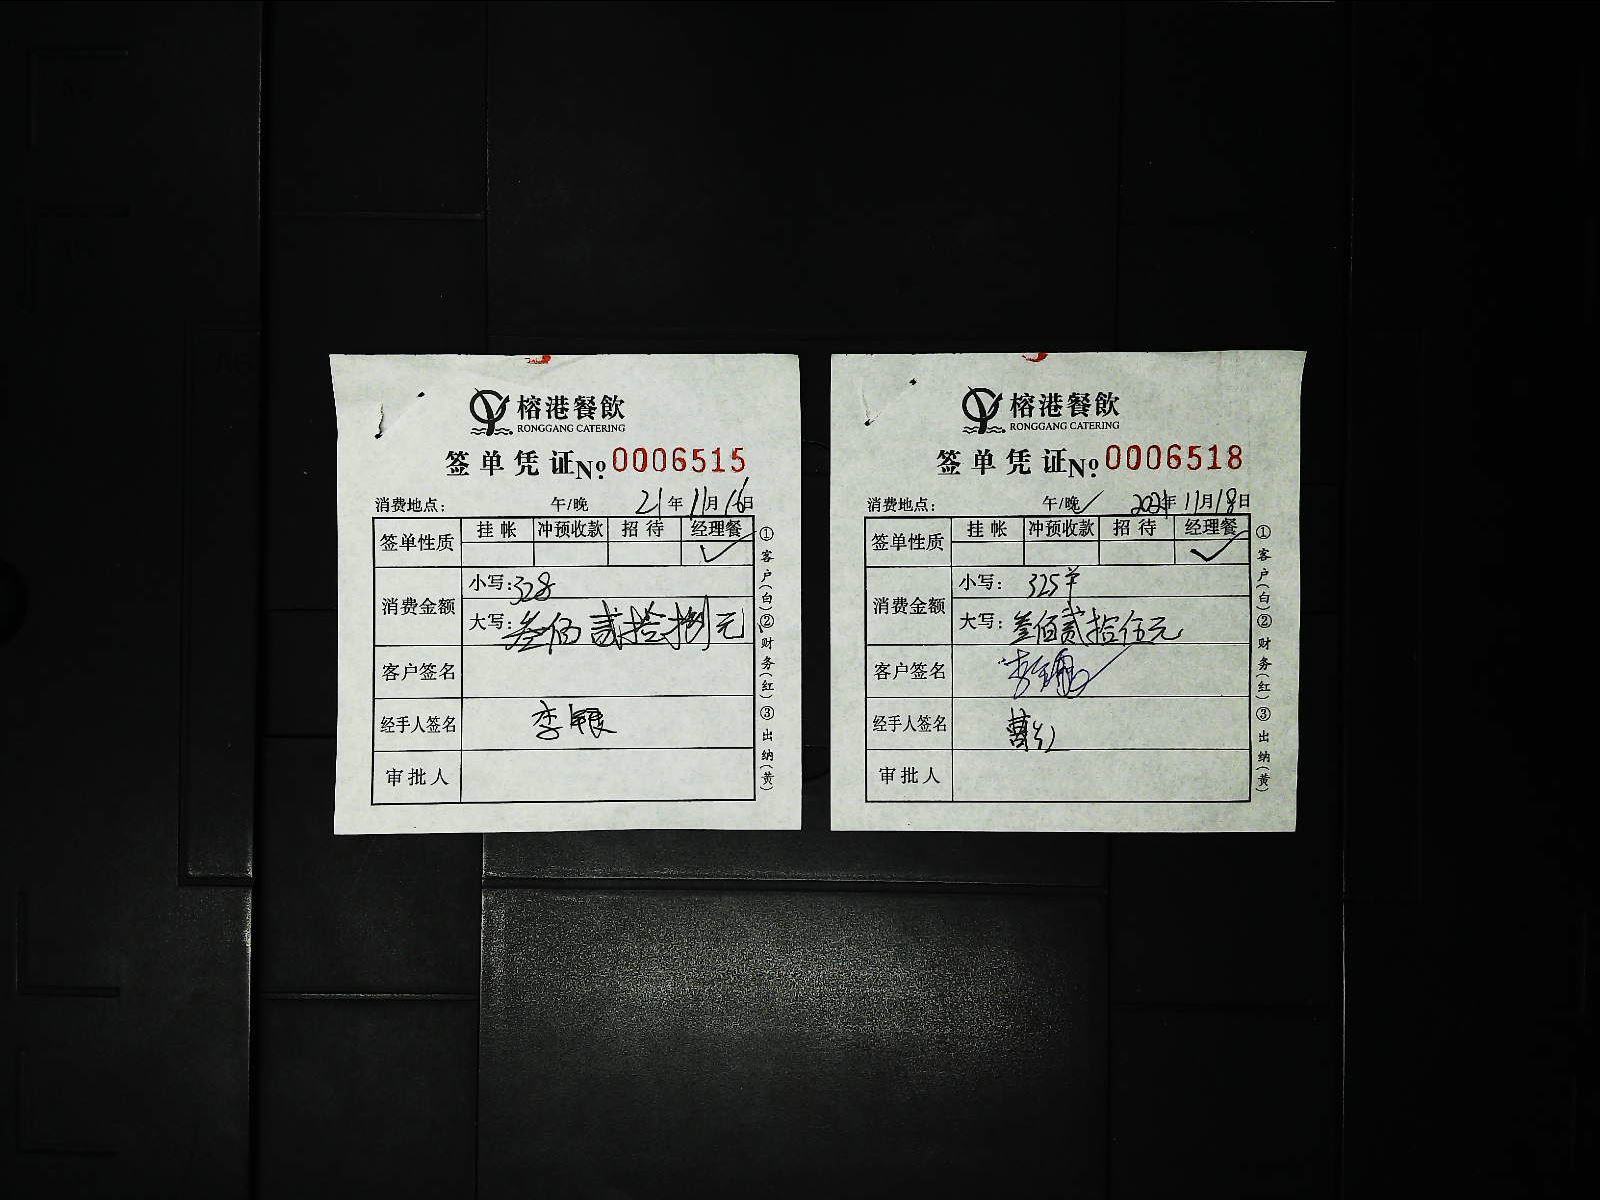 榕港餐飲
RONGGANG CATERING
签单凭证 No. 0006515
消费地点: 午/晚 21年11月16日
签单性质 挂帐 冲预收款 招待 经理餐
✓
消费金额 小写: 328
大写: 叁佰贰拾捌元
客户签名
经手人签名 李
审批人
①客户(白)②财务(红)③出纳(黄)
榕港餐飲
RONGGANG CATERING
签单凭证 No. 0006518
消费地点: 午/晚✓ 2021年11月18日
签单性质 挂帐 冲预收款 招待 经理餐
✓
消费金额 小写: 325
大写: 叁佰贰拾伍元
客户签名 李
经手人签名 曹红
审批人
①客户(白)②财务(红)③出纳(黄)